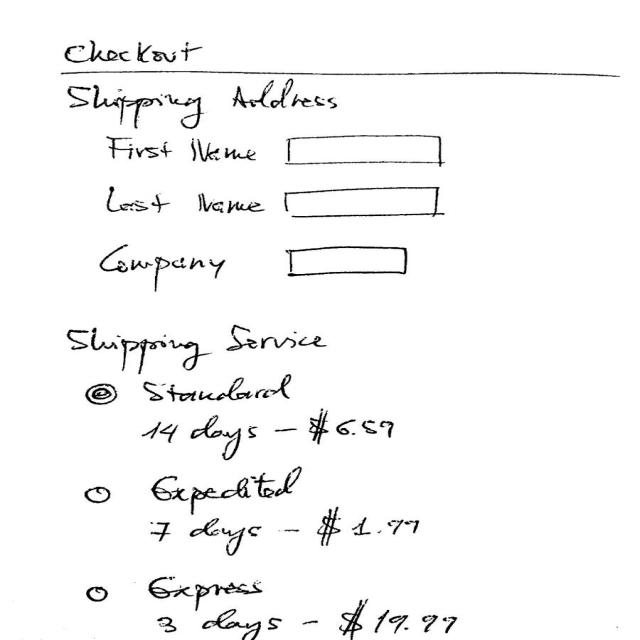 Checkout
Shipping Address
First Name
Last Name
Company
Shipping Service
Standard
14 days - $6.59
Expedited
7 days - $1.99
Express
3 days - $19.99